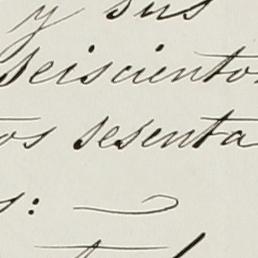 y sus
seiscientos
tos sesenta
s: